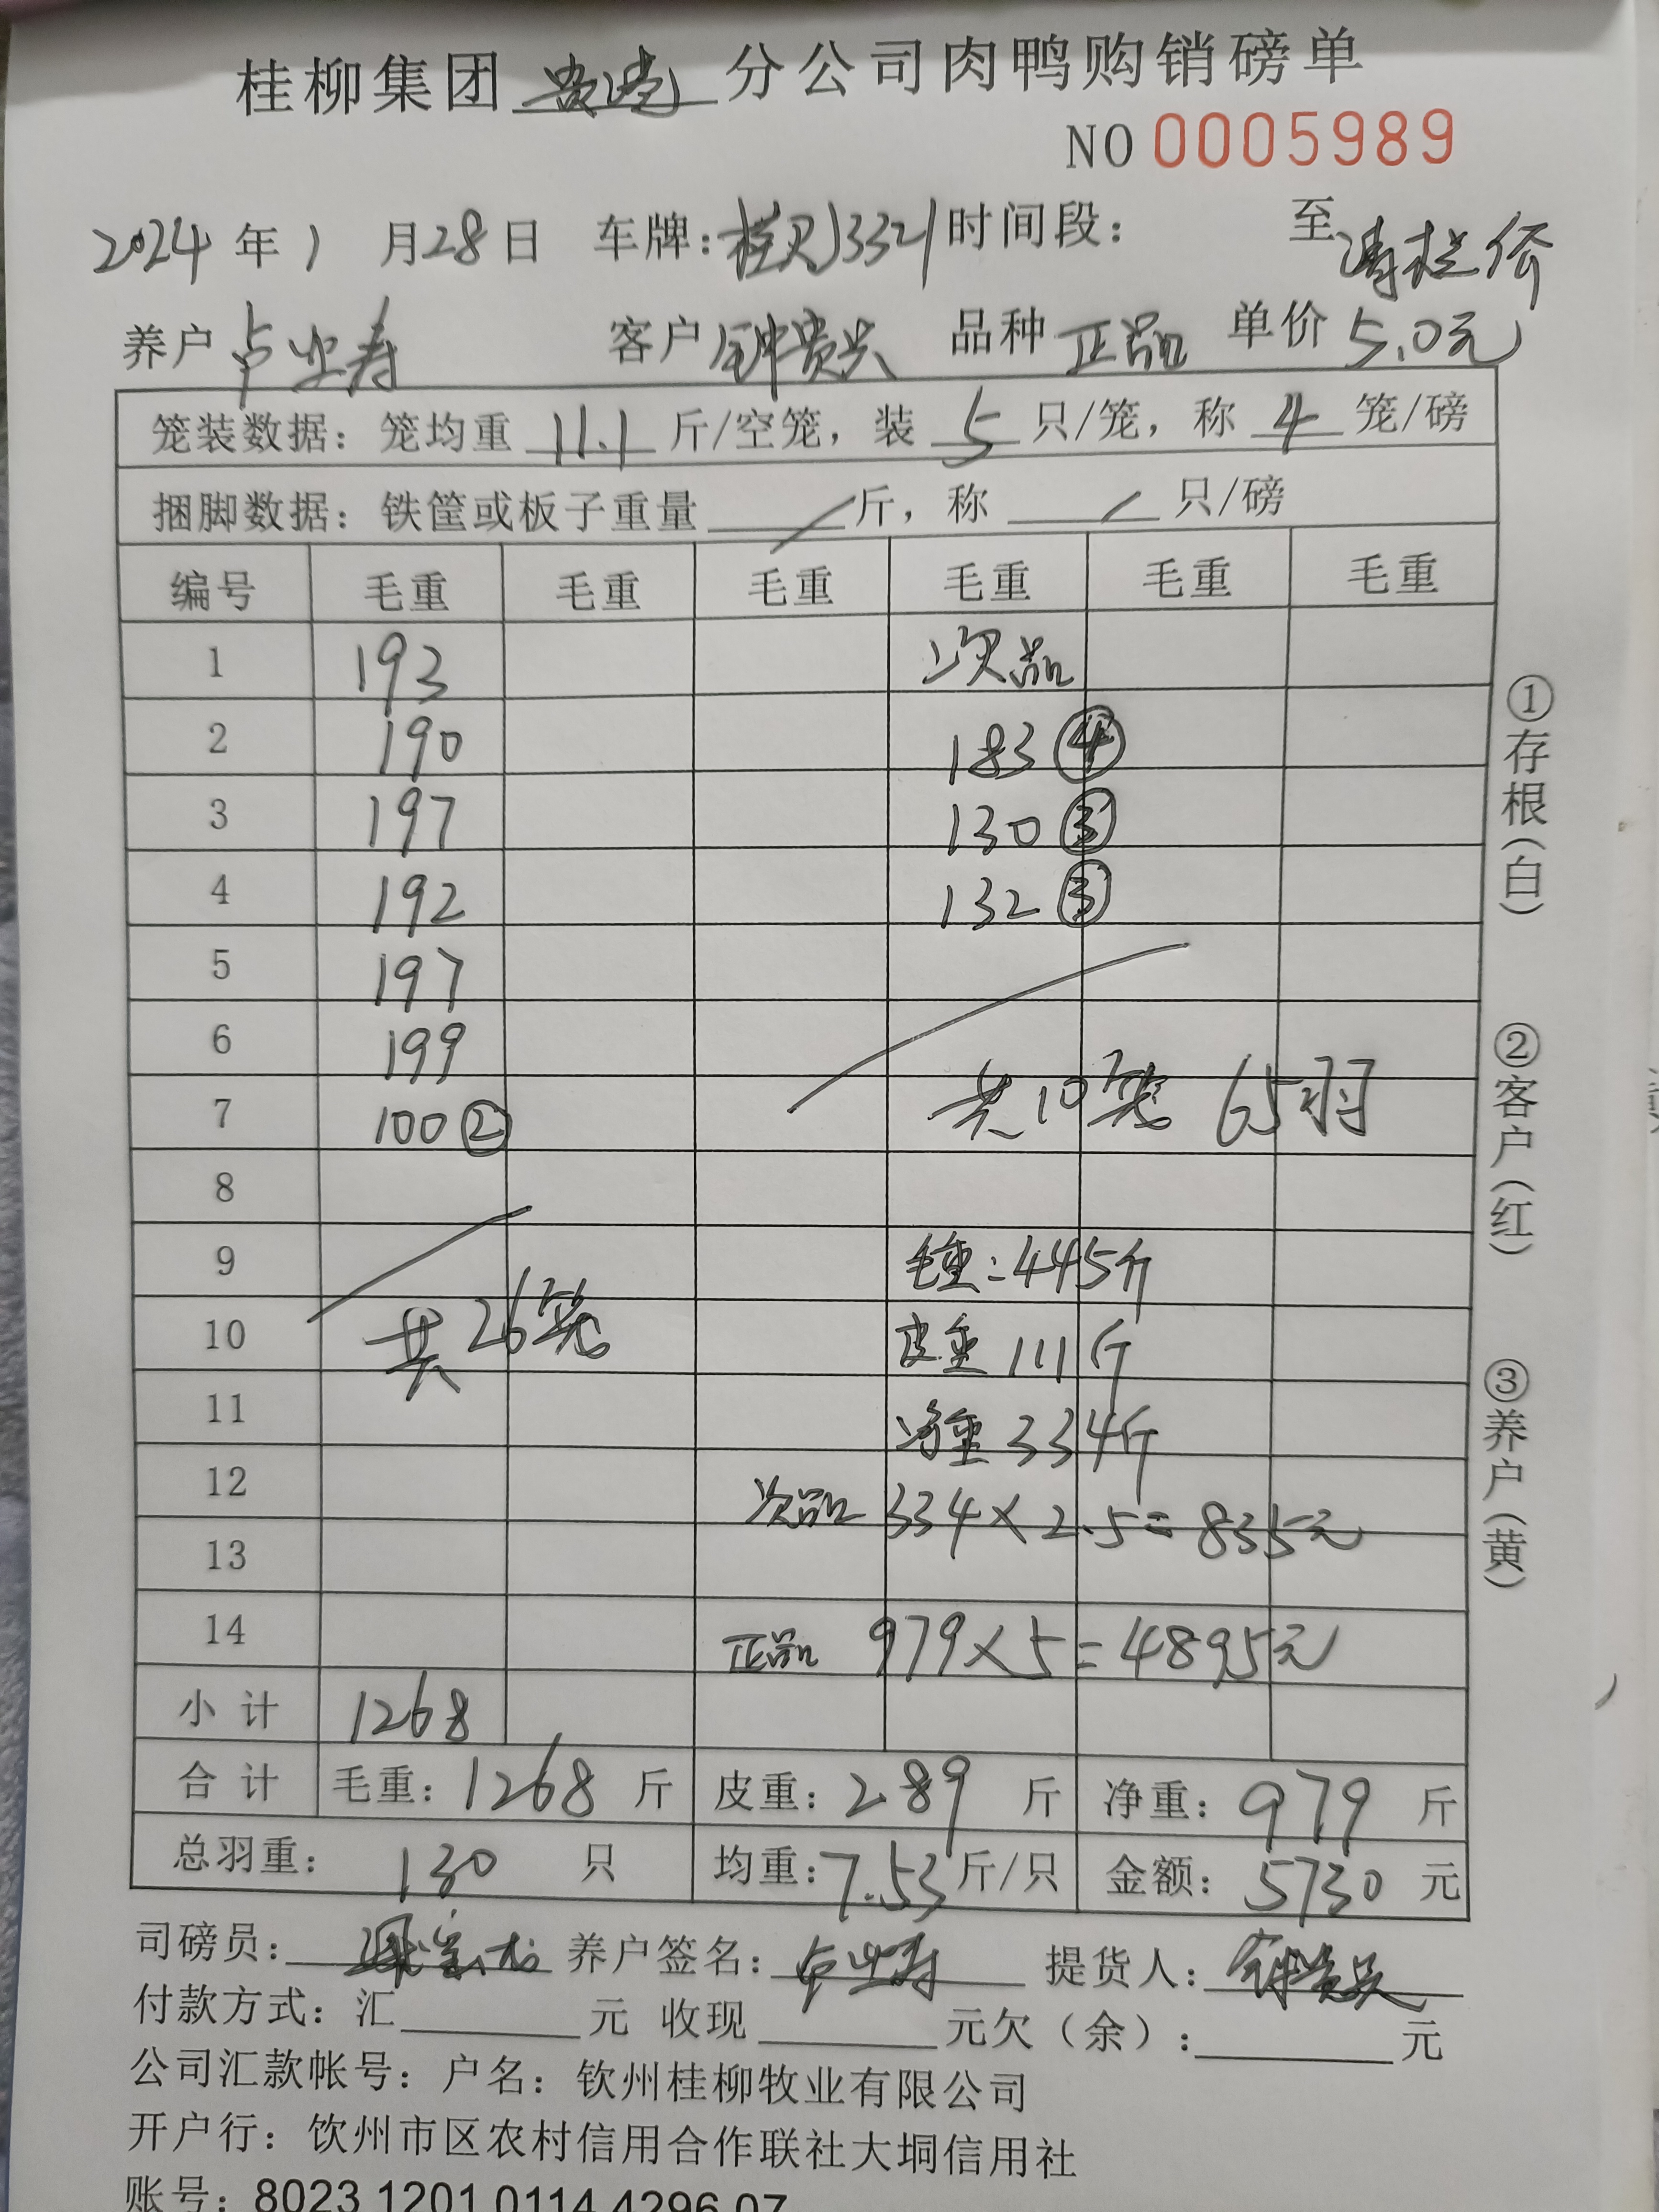 桂柳集团 贵港 分公司肉鸭购销磅单
NO 0005989
2024 年 1 月 28 日 车牌: 桂 J3321 时间段: 至 清栏价
养户 卢业寿 客户 钟贵兴 品种 正品 单价 5.0元
笼装数据: 笼均重 11.1 斤/空笼, 装 5 只/笼, 称 4 笼/磅
捆脚数据: 铁筐或板子重量 / 斤, 称 / 只/磅
编号 毛重 毛重 毛重 毛重 毛重 毛重
1 193 次品
2 190 183 ④
3 197 130 ③
4 192 132 ③
5 197
6 199
7 100 ② 共10笼 65羽
8
9 毛重:445斤
10 共26笼 皮重 111斤
11 净重 334斤
12 次品 334×2.5=835元
13
14 正品 979×5=4895元
小计 1268
合计 毛重: 1268 斤 皮重: 289 斤 净重: 979 斤
总羽重: 130 只 均重: 7.53 斤/只 金额: 5730 元
司磅员: 养户签名: 卢业寿 提货人: 钟贵兴
付款方式: 汇 元 收现 元欠(余): 元
公司汇款帐号: 户名: 钦州桂柳牧业有限公司
开户行: 钦州市区农村信用合作联社大垌信用社
账号: 8023 1201 0114 4296 07
①存根(白)
②客户(红)
③养户(黄)